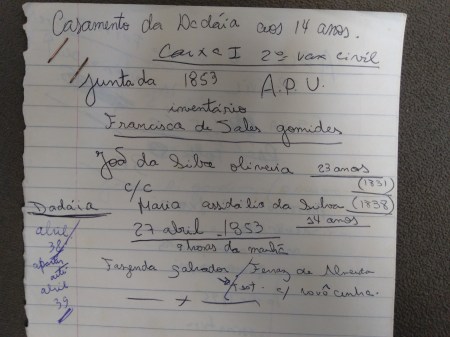 Casamento da Dadáia aos 14 anos.
Caixa I 2ª vax civil
Juntada 1853 A.P.U.
inventário
Francisca de Sales gomides
João da Silva oliveira 23 anos
(1831)
c/c Maria da Silva (1838)
14 anos
27 abril - 1853
9 horas da manhã
Fazenda Salvador / Ferraz de Almeida
test. c/ vovô cunha.
Dadáia
abril
38
até
abril
39